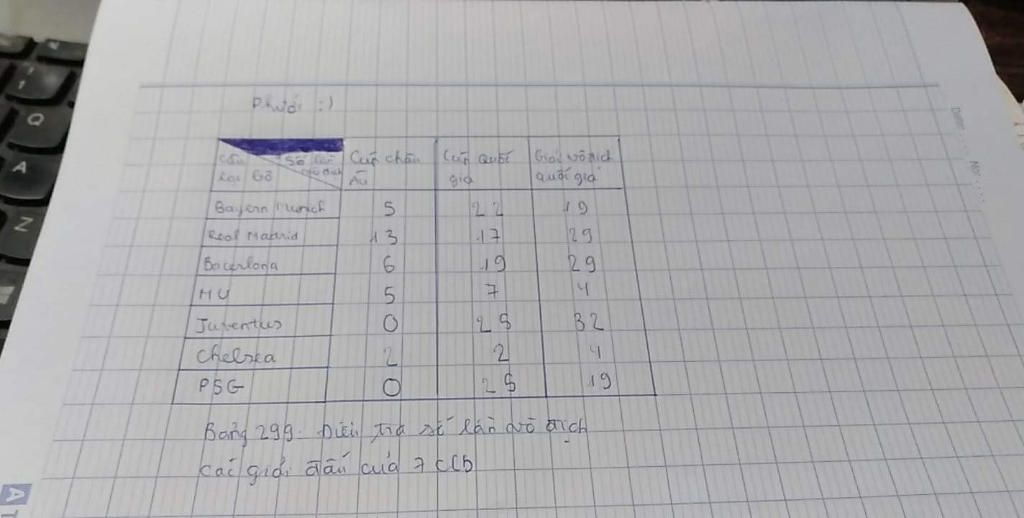 Phưới :)
Câu lạc bộ Số lần vô địch Cúp châu Âu Cúp quốc gia Giải vô địch quốc gia
Bayern Munich 5 22 19
Real Madrid 13 17 29
Bacerlona 6 19 29
MU 5 7 4
Juventus 0 25 32
Chelsea 2 2 4
PSG 0 25 19
Bảng 299. Điều tra số lần vô địch
các giải đấu của 7 CLB